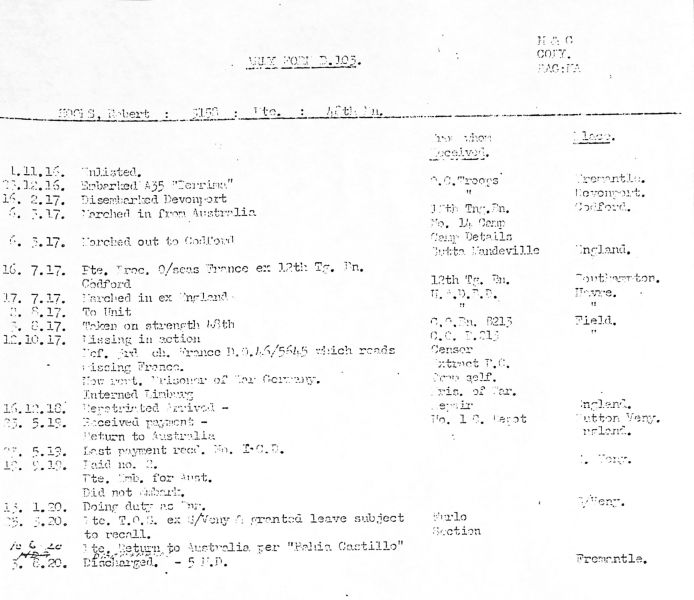 COPY.
D.103.
Robert : : Pte. : 48th Bn.
From whom Place.
received.
1.11.16. Enlisted.
23.12.16. Embarked A35 "Berrima" O.C.Troops Fremantle.
16. 2.17. Disembarked Devonport " Devonport.
6. 3.17. Marched in from Australia 12th Tng.Bn. Codford.
No. 14 Camp
6. 3.17. Marched out to Codford Camp Details
Mandeville England.
16. 7.17. Pte. Proc. O/seas France ex 12th Tg. Bn. 12th Tg. Bn. Southampton.
Codford
17. 7.17. Marched in ex England Havre.
8.17. To Unit " "
8.17. Taken on strength 48th C.O.Bn. B213 Field.
12.10.17. Missing in action C.O. B.213 "
France D.O.46/5645 which reads Censor
Missing France. Extract
Now Prisoner of War Germany. self.
Interned Limburg Pris. of War.
16.12.18. Repatriated Arrived - Repair England.
23. 5.19. Received payment - No. 1 C. Depot Sutton Veny.
Return to Australia England.
5.19. Last payment recd. No.
9.19. Paid no. 2. Veny.
Pte. Emb. for Aust.
Did not embark.
13. 1.20. Doing duty as S/Veny.
3.20. Pte. T.O.S. ex S/Veny & granted leave subject Furlo
to recall. Section
Pte. Return to Australia per "Bahia Castillo"
3. 8.20. Discharged. - 5 M.D. Fremantle.